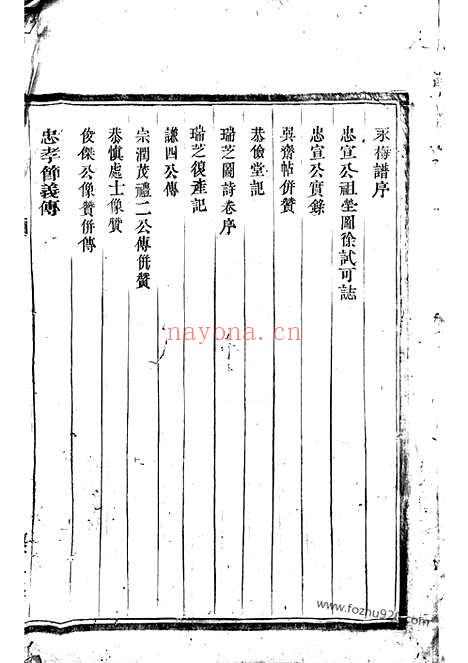 永梅譜序
忠宣公祖塋圖徐試可誌
忠宣公實錄
巽齋帖併贊
恭儉堂記
瑞芝圖詩卷序
瑞芝復產記
謙四公傳
宗潤茂禮二公傳併贊
恭慎處士像贊
俊傑公像贊併傳
忠孝節義傳
nayona.cn
www.fozhu920.com